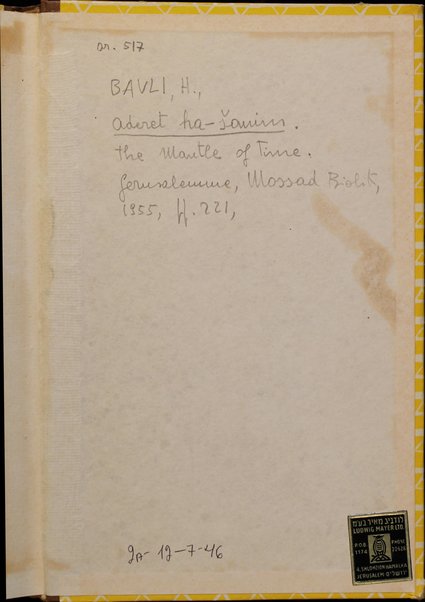 or. 517
BAVLI, H.,
aderet ha-šanim.
the Mantle of Time.
Jerusalemme, Mossad Bialik,
1955, pp. 221,
לודביג מאיר בע"מ
LUDWIG MAYER LTD.
P.O.B. 1174
PHONE 22628
4, SHLOMZION HAMALKA
JERUSALEM ירושלים
2A-12-7-46